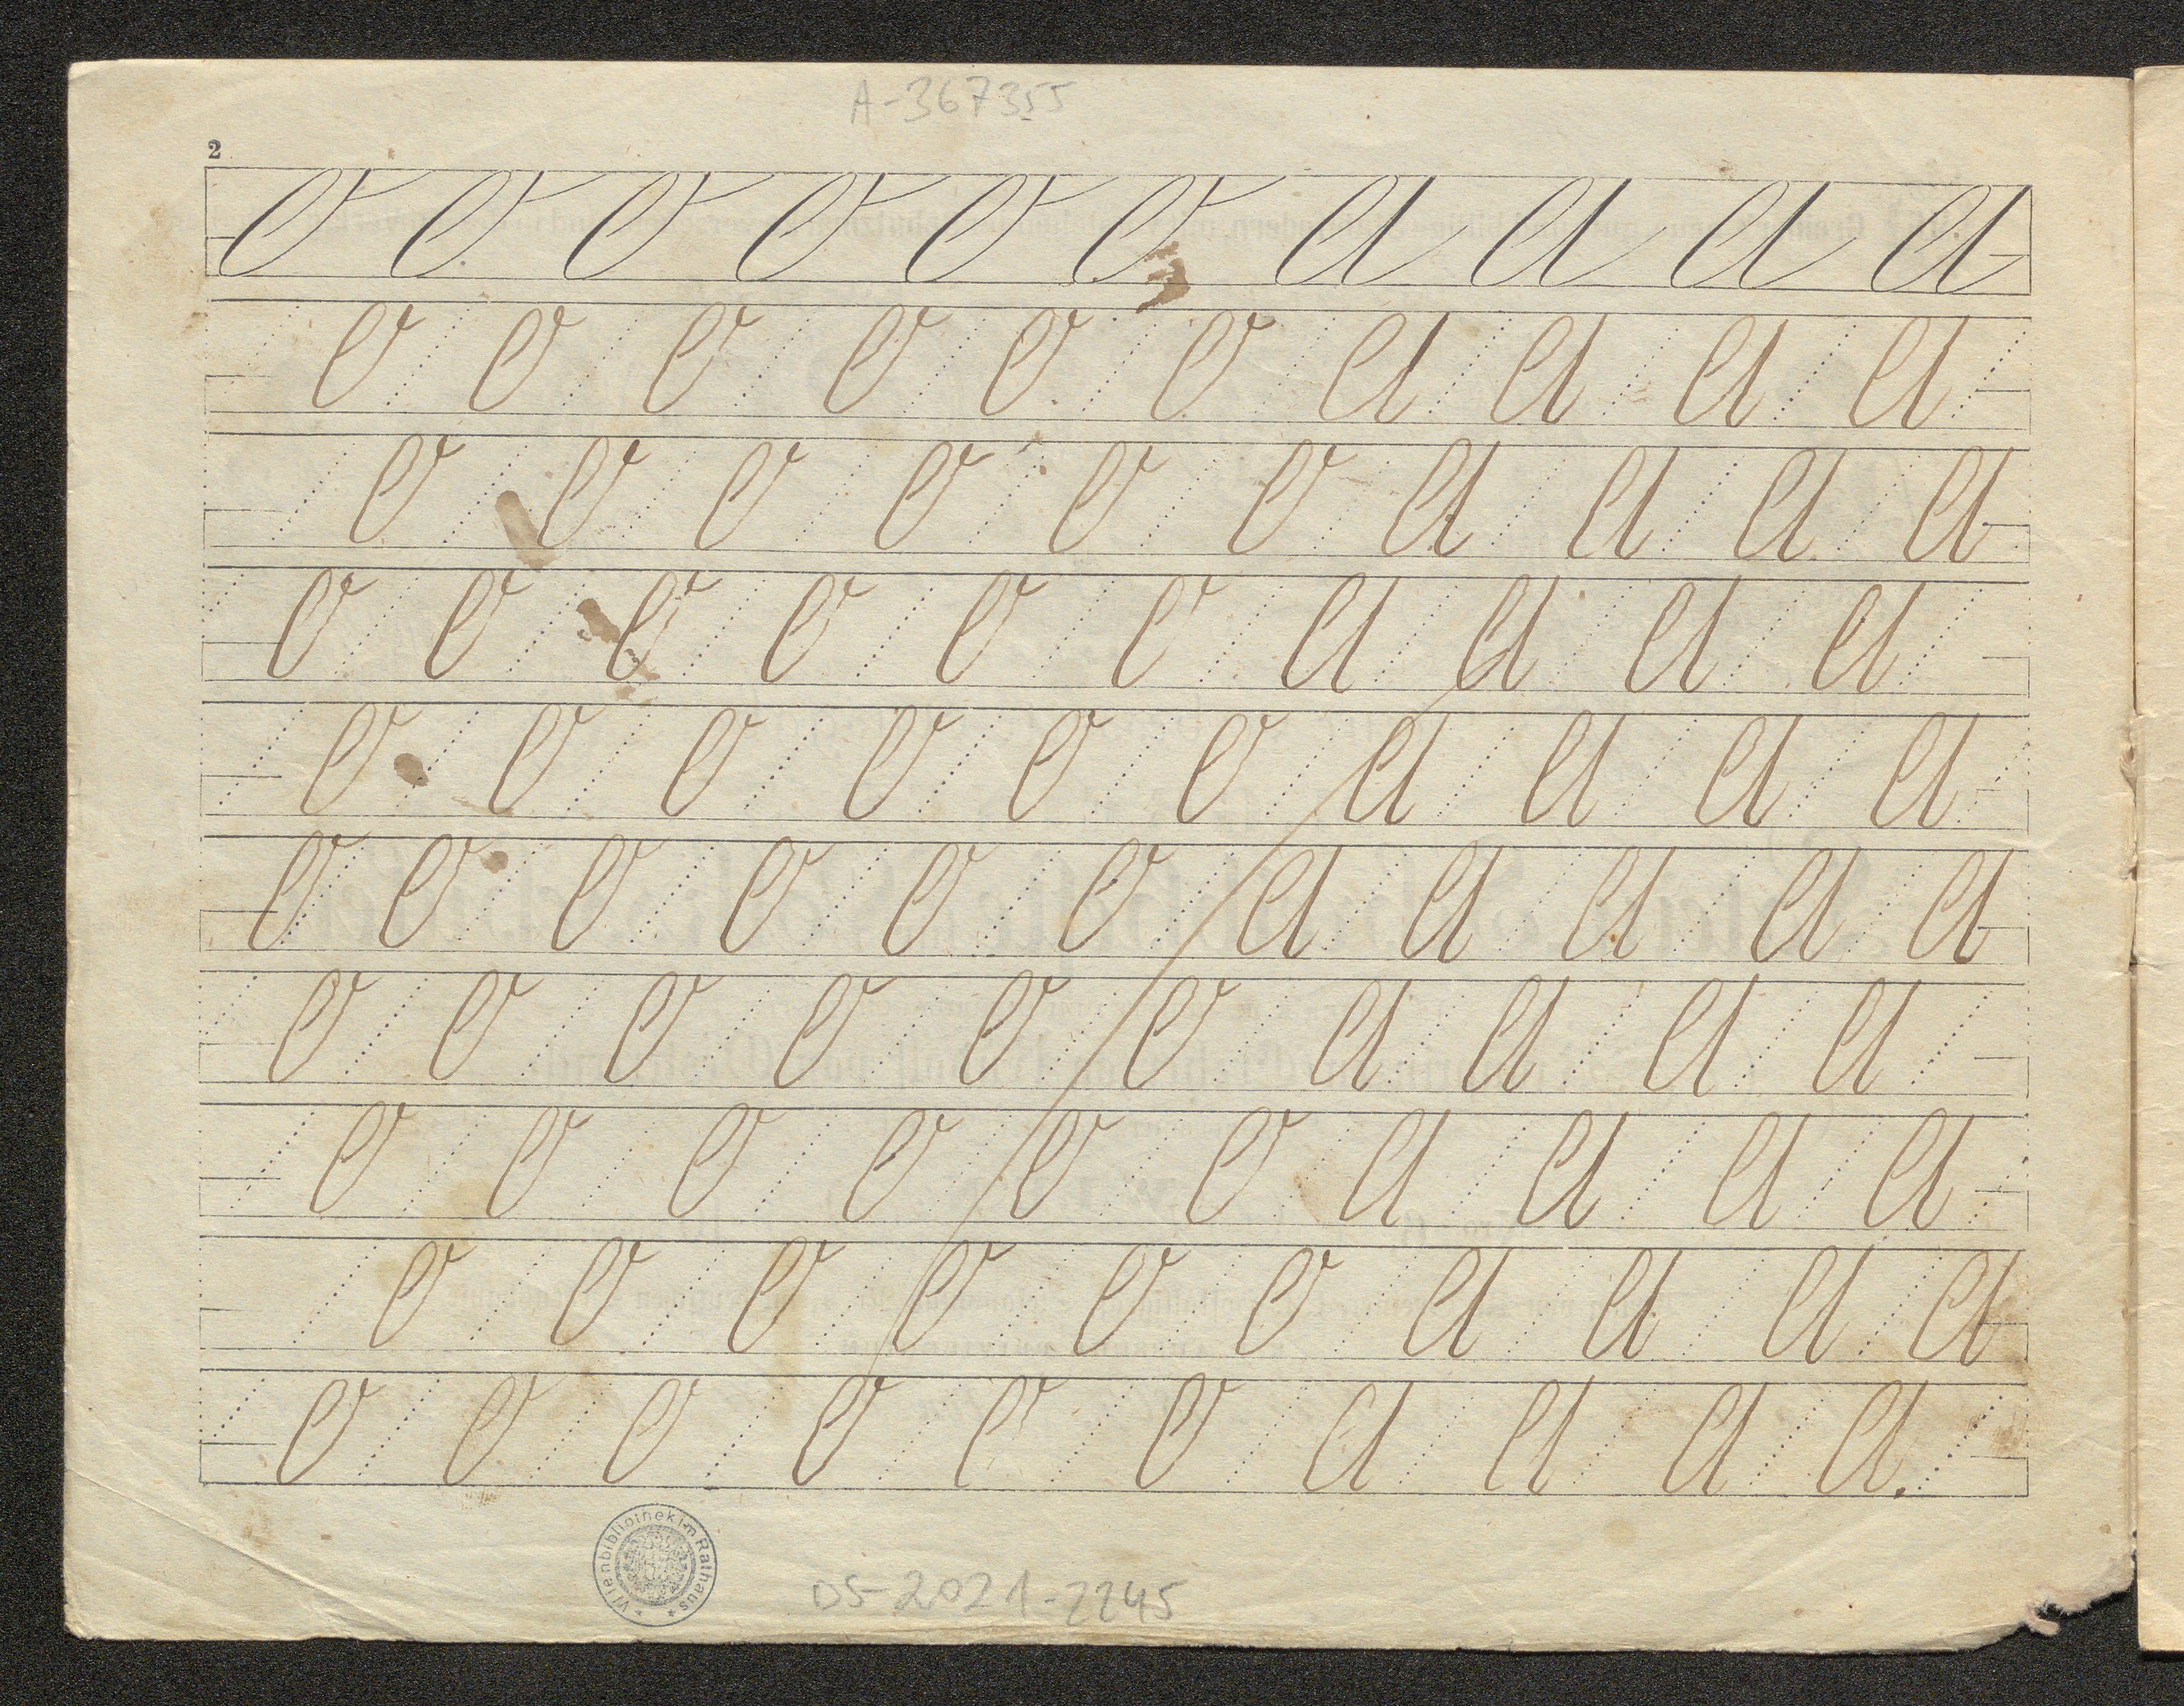 A-367355
2
O O O O O O A A A A
O O O O O O A A A A
O O O O O O A A A A
O O O O O O A A A A
O O O O O O A A A A
O O O O O O A A A A
O O O O O O A A A A
O O O O O O A A A A
O O O O O O A A A A
O O O O O O A A A A.
Wienbibliothek im Rathaus
DS-2021-2245